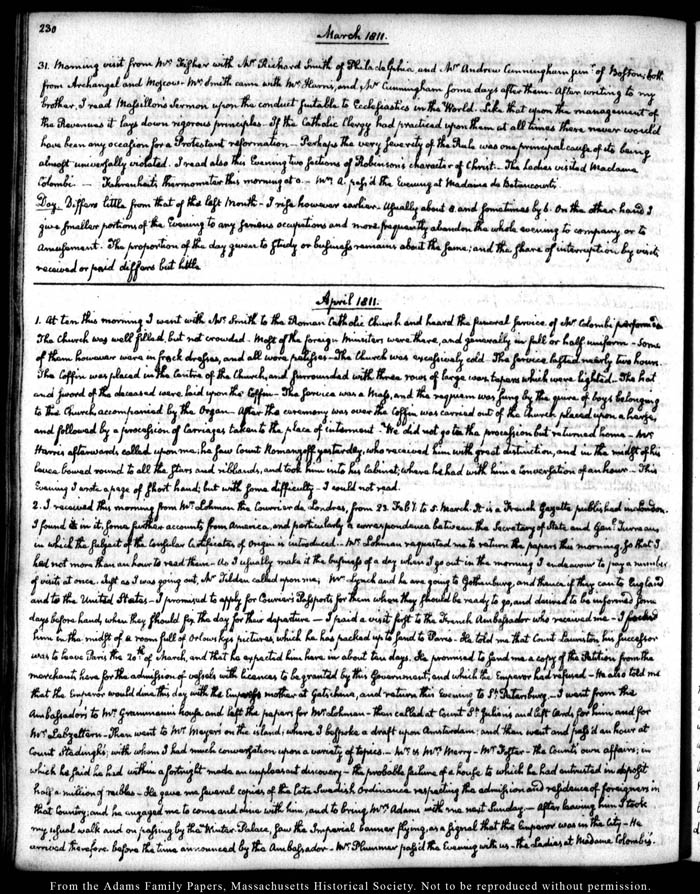 230
March 1811.
31. Morning visit from Mr. Fisher with Mr. Richard Smith of Philadelphia, and Mr. Andrew Cunningham junr. of Boston, both
from Archangel and Moscow. Mr. Smith came with Mr. Harris, and Mr. Cunningham some days after them. After writing to my
brother, I read Massillon's Sermon upon the conduct suitable to Ecclesiastics in the World. Like that upon the management of
the Revenues it lays down rigorous principles. If the Catholic Clergy had practiced upon them at all times there never would
have been any occasion for a Protestant reformation. Perhaps the very severity of the Rule was one principal cause of its being
almost universally violated. I read also this Evening two sections of Robinson's character of Christ. The Ladies visited Madame
Colombi. — Fahrenheit's thermometer this morning at 0. Mrs. A. pass'd the Evening at Madame de Betancourt's
Day. Differs little from that of the last Month. I rise however earlier. Usually about 8 and sometimes by 6. On the other hand I
give smaller portions of the Evening to any serious occupations and more frequently abandon the whole evening to company or to
Amusement. The proportion of the day given to Study or business remains about the same; and the share of interruption by visits
received or paid differs but little
April 1811.
1. At ten this morning I went with Mr. Smith to the Roman Catholic Church and heard the funeral service of Mr. Colombi performed.
The Church was well filled, but not crowded. Most of the foreign Ministers were there, and generally in full or half uniform. Some
of them however were in frock dresses, and all wore pelisses. The Church was excessively cold. The Service lasted nearly two hours.
The Coffin was placed in the Centre of the Church, and surrounded with three rows of large wax tapers which were lighted. The hat
and sword of the deceased were laid upon the Coffin. The service was a Mass, and the requiem was sung by the quire of boys belonging
to the Church, accompanied by the Organ. After the ceremony was over the Coffin was carried out of the Church, placed upon a hearse,
and followed by a procession of Carriages taken to the place of interment. We did not go in the procession but returned home. Mr.
Harris afterwards called upon me; he saw Count Romanzoff yesterday, who received him with great distinction, and in the midst of his
levee, bowed round to all the stars and ribbands, and took him into his Cabinet; where he had with him a Conversation of an hour. This
Evening I wrote a page of short hand; but with some difficulty. I could not read.
2. I received this morning from Mr. Lohman the Courier de Londres, from 22. Feby. to 5. March. It is a French Gazette published in London.
I found in it, some further accounts from America, and particularly a correspondence between the Secretary of State and Genl. Turreau
in which the subject of the Consular Certificates of Origin is introduced. Mr. Lohman requested me to return the papers this morning, so that I
had not more than an hour to read them. As I usually make it the business of a day when I go out in the morning I endeavour to pay a number
of visits at once. Just as I was going out, Mr. Tilden called upon me; Mr. Lynch and he are going to Gothenburg, and thence if they can to England
and to the United States. I promised to apply for Courier's Passports for them when they should be ready to go, and desired to be informed some
days before hand, when they should fix the day for their departure — I paid a visit first to the French Ambassador who received me. I found
him in the midst of a room full of Orlowsky's pictures, which he has packed up to send to Paris. He told me that Count Lauriston his successor
was to leave Paris the 20th. of March, and that he expected him here in about ten days. He promised to send me a copy of the Petition from the
merchants here for the admission of vessels with licences to be granted by this Government, and which the Emperor had refused. He also told me
that the Emperor would dine this day with the Empress mother at Gatschina, and return this Evening to St. Petersburg. I went from the
Ambassador's to Mr. Grammann's house and left the papers for Mr. Lohman. then called at Count St. Julien's and left Cards for him and for
Mr. Lebzeltern. Then went to Mr. Meyer's on the island; where I bespoke a draft upon Amsterdam; and then went and pass'd an hour at
Count Stedingk's; with whom I had much conversation upon a variety of topics. Mr. & Mrs. Merry. Mr. Foster. the Count's own affairs; in
which he said he had within a fortnight made an unpleasant discovery. the probable failure of a house to which he had entrusted in deposit
half a million of roubles. He gave me several copies of the late Swedish Ordinance respecting the admission and residence of foreigners in
that Country; and he engaged me to come and dine with him, and to bring Mrs. Adams with me next Sunday. After leaving him I took
my usual walk and on passing by the Winter-Palace, saw the Imperial banner flying, as a signal that the Emperor was in the City. He
arrived therefore before the time announced by the Ambassador. Mr. Plummer pass'd the Evening with us. the Ladies at Madame Colombi's.
From the Adams Family Papers, Massachusetts Historical Society. Not to be reproduced without permission.